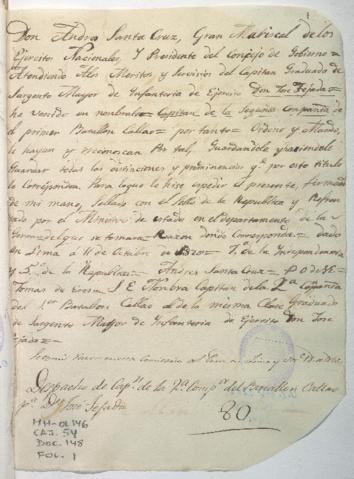 Don Andres Santa Cruz, Gran Mariscal de los
Ejercitos Nacionales, Y Presidente del Consejo de Gobierno
Atendiendo Alos Meritos y Servicios del Capitan Graduado de
Sargento Mayor de Infanteria de Ejercito Don Jose Tejada=
ha venido en nombrarlo Capitan de la Segunda Compañia de
el primer Batallon Callao= por tanto= Ordeno y Mando,
le hayan y reconozcan Por tal, Guardandole y haciendole
Guardar todas las distinciones y preeminencias qe. por este titulo
le Corresponden. Para loque le hise espedir el presente, firmado
de mi mano, Sellado con el Sello de la Republica y Refren
dado por el Ministro de estado en el departamento de la
Guerra del que se tomara Razon donde Corresponda. dado
en Lima a 11 de Octubre 7.ª de la Independencia
y 5. de la Republica= Andres Santa Cruz= P O de S E=
Tomas de S E Nombra Capitan de la 2ª Compañia
del 1er Batallon Callao al de la misma Clase Graduado
de Sargento Mayor de Infanteria de Ejercito Don Jose
Tejada=
Despacho de Capn. de la 2ª Compª del Batallon Callao
pª Dn José Tejada
80.
MH-OL146
CAJ. 54
DOC. 148
FOL. 1